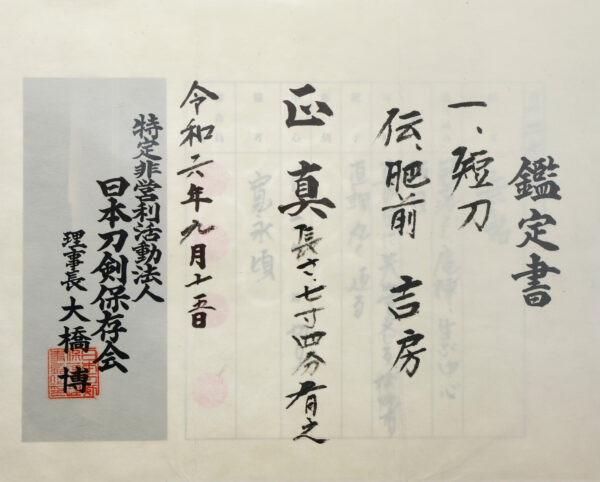 鑑定書
一、短刀
伝、肥前 吉房
正真 長さ、七寸四分有之
令和六年九月十五日
特定非営利活動法人
日本刀剣保存会
理事長 大橋 博
寛永頃